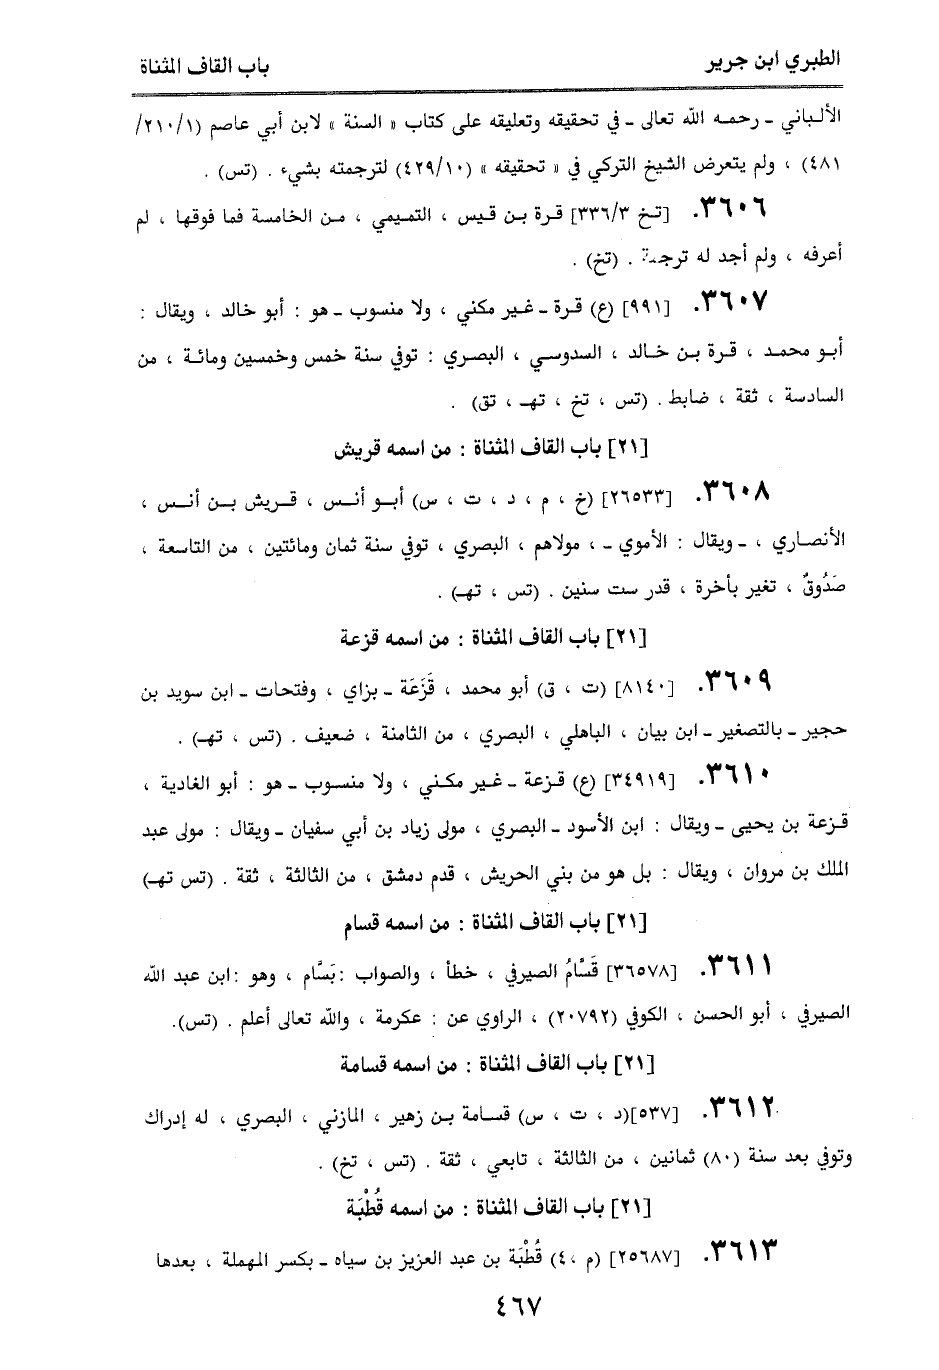 الطبري ابن جرير
باب القاف المثناة
الألباني ـ رحمه الله تعالى ـ في تحقيقه وتعليقه على كتاب « السنة » لابن أبي عاصم (٢١٠/١/
٤٨١) ، ولم يتعرض الشيخ التركي في « تحقيقه » (٤٢٩/١٠) لترجمته بشيء . (تس) .
٣٦٠٦. [تخ ٣٣٦/٣] قرة بن قيس ، التميمي ، من الخامسة فما فوقها ، لم
أعرفه ، ولم أجد له ترجمة . (تخ) .
٣٦٠٧. [٩٩١] (ع) قرة ـ غير مكني ، ولا منسوب ـ هو : أبو خالد ، ويقال :
أبو محمد ، قرة بن خالد ، السدوسي ، البصري : توفي سنة خمس وخمسين ومائة ، من
السادسة ، ثقة ، ضابط . (تس ، تخ ، تهـ ، تق) .
[٢١] باب القاف المثناة : من اسمه قريش
٣٦٠٨. [٢٦٥٣٣] (خ ، م ، د ، ت ، س) أبو أنس ، قريش بن أنس ،
الأنصاري ، ـ ويقال : الأموي ـ ، مولاهم ، البصري ، توفي سنة ثمان ومائتين ، من التاسعة ،
صَدُوقٌ ، تغير بأخرة ، قدر ست سنين . (تس ، تهـ) .
[٢١] باب القاف المثناة : من اسمه قزعة
٣٦٠٩. [٨١٤٠] (ت ، ق) أبو محمد ، قَزَعَة ـ بزاي ، وفتحات ـ ابن سويد بن
حجير ـ بالتصغير ـ ابن بيان ، الباهلي ، البصري ، من الثامنة ، ضعيف . (تس ، تهـ) .
٣٦١٠. [٣٤٩١٩] (ع) قزعة ـ غير مكني ، ولا منسوب ـ هو : أبو الغادية ،
قزعة بن يحيى ـ ويقال : ابن الأسود ـ البصري ، مولى زياد بن أبي سفيان ـ ويقال : مولى عبد
الملك بن مروان ، ويقال : بل هو من بني الحريش ، قدم دمشق ، من الثالثة ، ثقة . (تس تهـ)
[٢١] باب القاف المثناة : من اسمه قسام
٣٦١١. [٣٦٥٧٨] قَسَّامُ الصيرفي ، خطأ ، والصواب :بَسَّام ، وهو :ابن عبد الله
الصيرفي ، أبو الحسن ، الكوفي (٢٠٧٩٢) ، الراوي عن : عكرمة ، والله تعالى أعلم . (تس).
[٢١] باب القاف المثناة : من اسمه قسامة
٣٦١٢. [٥٣٧](د ، ت ، س) قسامة بن زهير ، المازني ، البصري ، له إدراك
وتوفي بعد سنة (٨٠) ثمانين ، من الثالثة ، تابعي ، ثقة . (تس ، تخ) .
[٢١] باب القاف المثناة : من اسمه قُطْبَة
٣٦١٣. [٢٥٦٨٧] (م ،٤) قُطْبَة بن عبد العزيز بن سياه ـ بكسر المهملة ، بعدها
٤٦٧